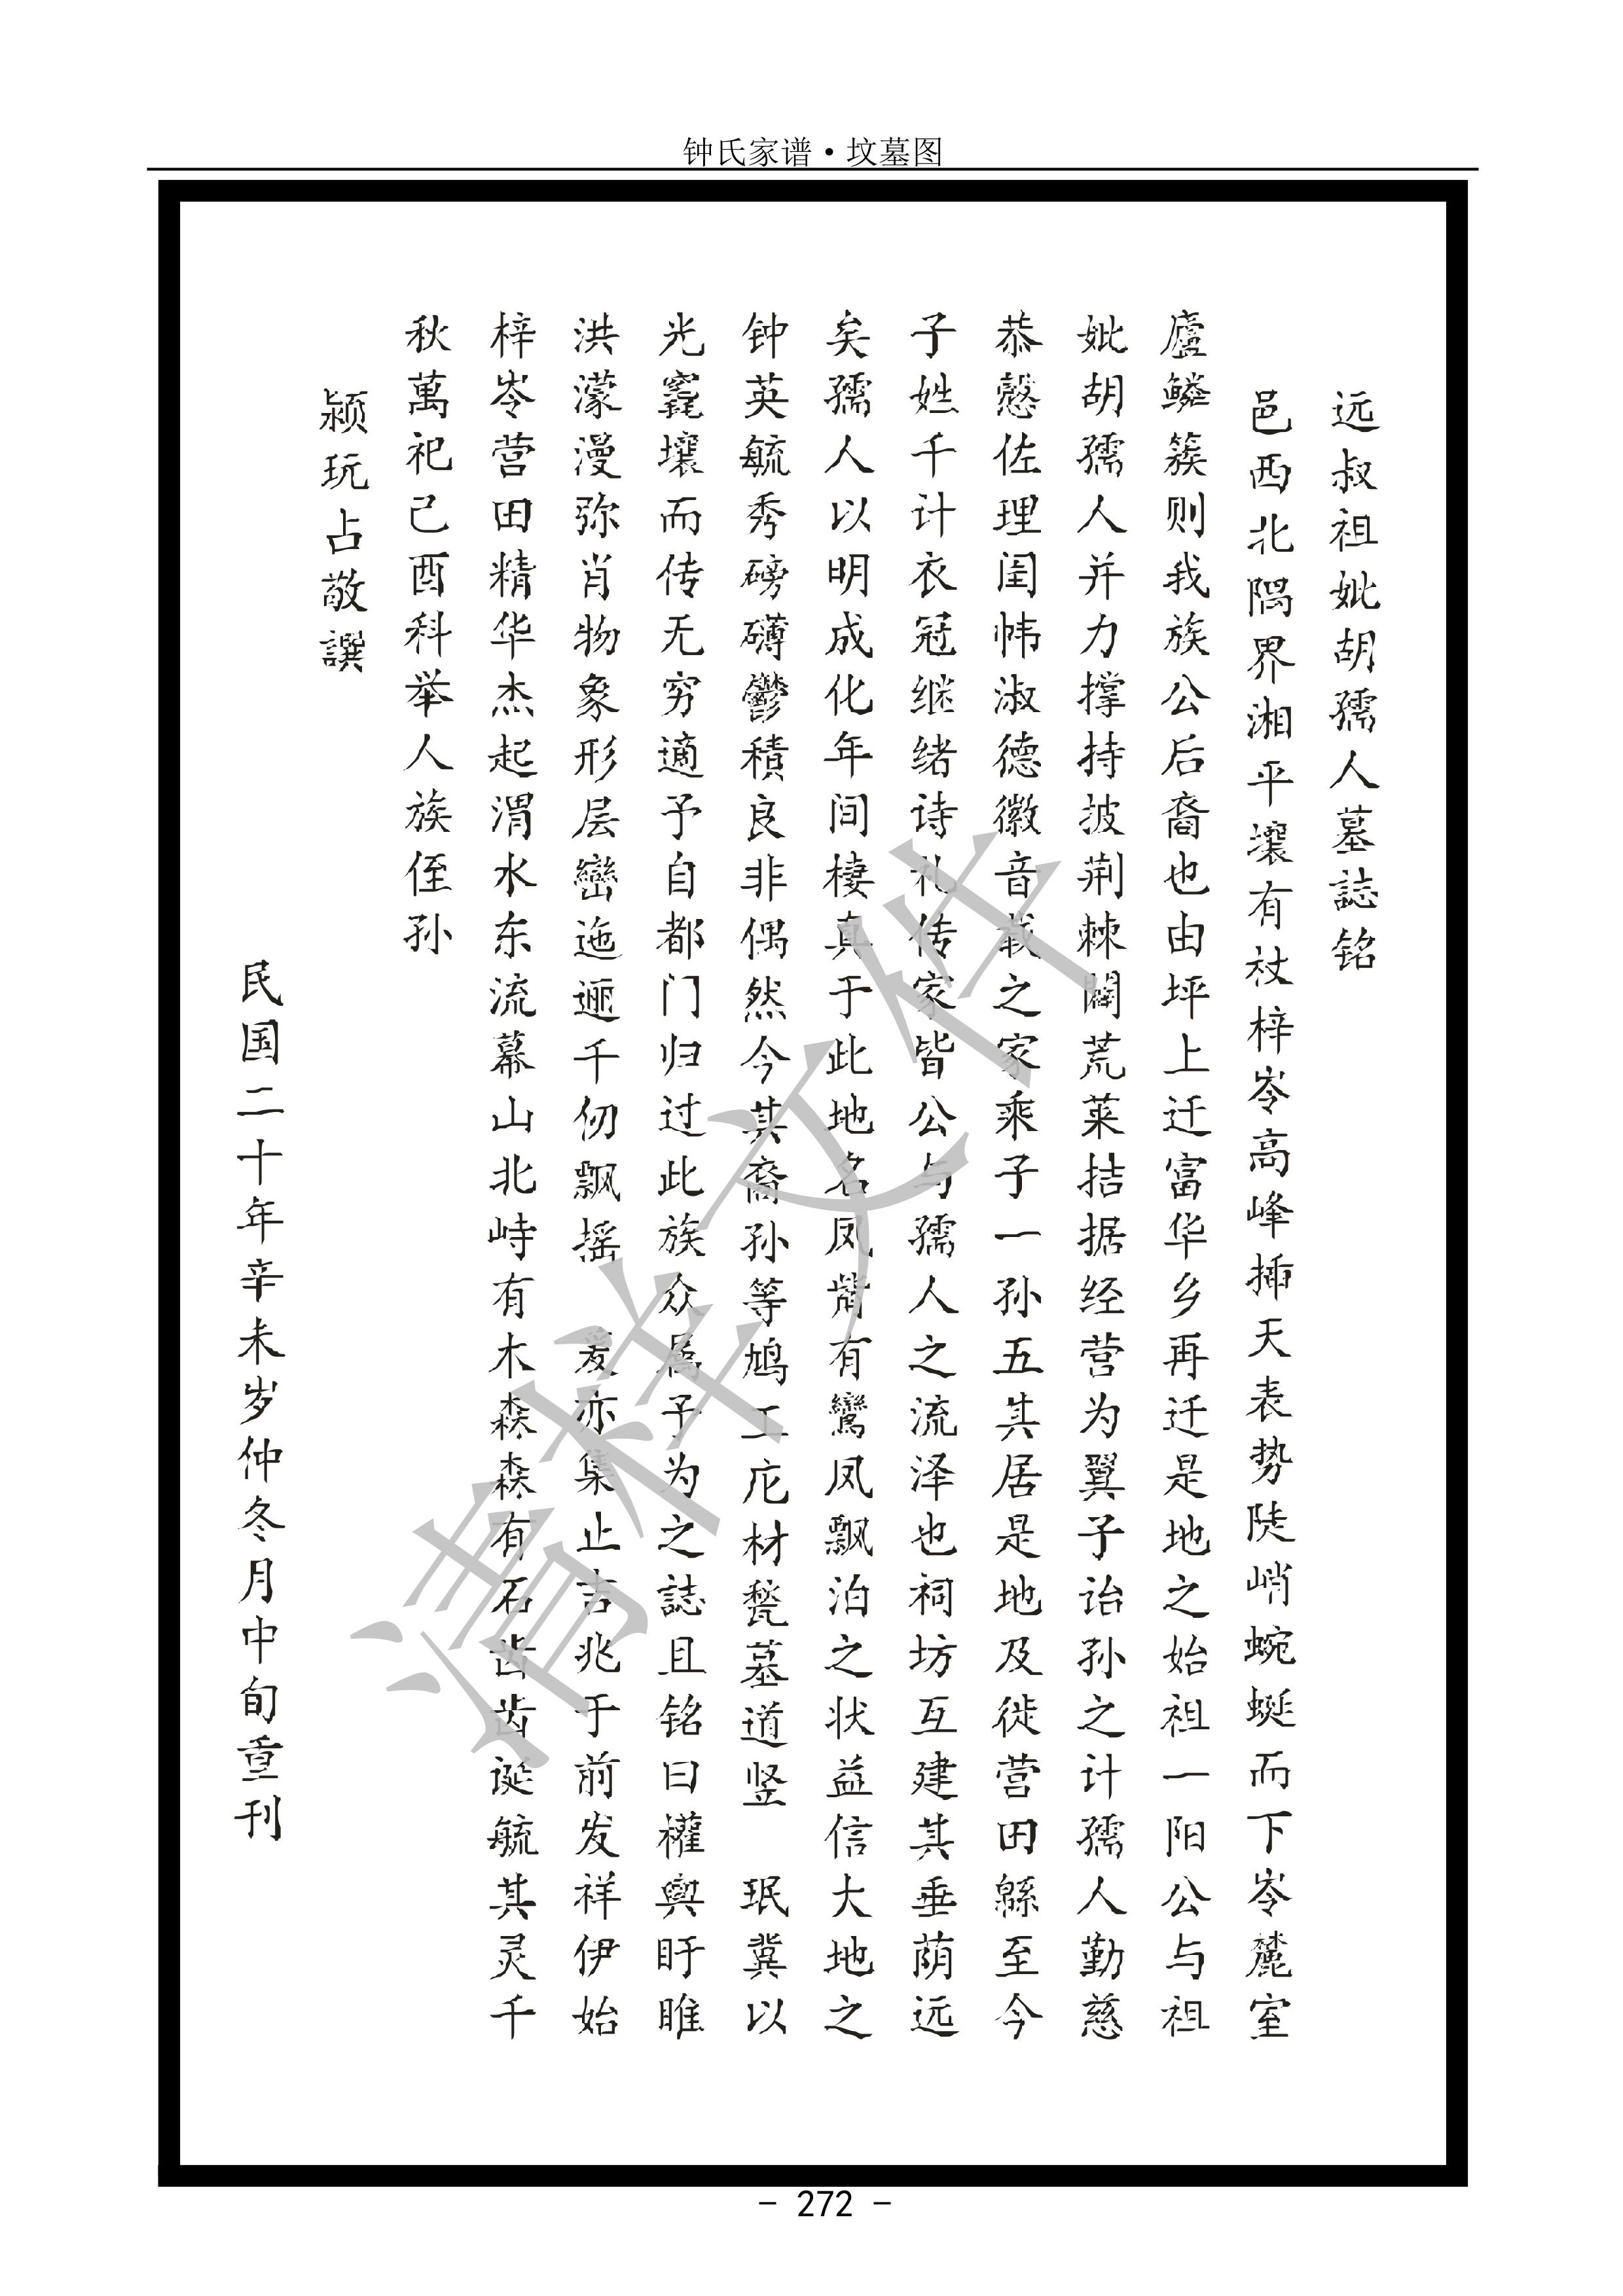 钟氏家谱·坟墓图
远叔祖妣胡孺人墓誌铭
邑西北隅界湘平壤有杖梓岺高峰揷天表势陡峭蜿蜒而下岺麓室
廬鳞簇则我族公后裔也由坪上迁富华乡再迁是地之始祖一阳公与祖
妣胡孺人并力撑持披荆棘闢荒莱拮据经营为翼子诒孙之计孺人勤慈
恭慤佐理闺帏淑德徽音载之家乘子一孙五其居是地及徙营田緜至今
子姓千计衣冠继绪诗礼传家皆公与孺人之流泽也祠坊互建其垂荫远
矣孺人以明成化年间棲真于此地名凤嘴有鸞凤飘泊之状益信大地之
钟英毓秀磅礴鬱積良非偶然今其裔孙等鸠工庀材甃墓道竖 珉冀以
光窀壤而传无穷適予自都门归过此族众属予为之誌且铭曰權輿盱睢
洪濛漫弥肖物象形层巒迤逦千仞飘摇 爰亦集止吉兆于前发祥伊始
梓岺营田精华杰起渭水东流幕山北峙有木森森有石齿齿诞毓其灵千
秋萬祀己酉科举人族侄孙
颍玩占敬譔
民国二十年辛未岁仲冬月中旬重刊
清样文件
- 272 -